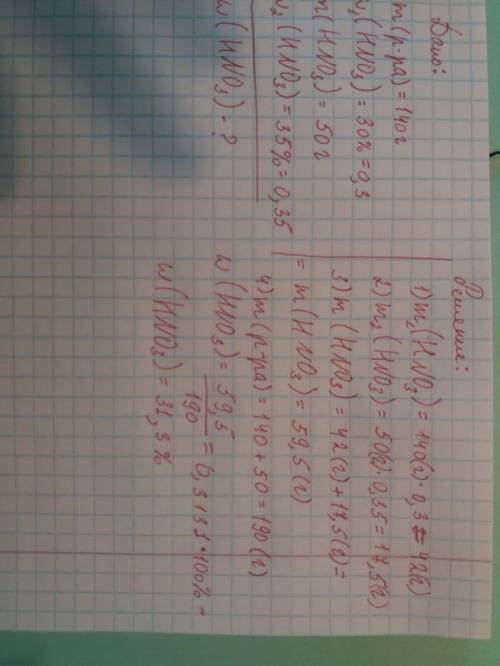 Дано:
m(р-ра) = 140г
w₁(HNO₃) = 30% = 0,3
m(HNO₃) = 50г
w₂(HNO₃) = 35% = 0,35
w(HNO₃) - ?
Решение:
1) m₂(HNO₃) = 140(г)·0,3 = 42(г)
2) m₂(HNO₃) = 50(г)·0,35 = 17,5(г)
3) m(HNO₃) = 42(г) + 17,5(г) =
= m(HNO₃) = 59,5(г)
4) m(р-ра) = 140 + 50 = 190(г)
w(HNO₃) = 59,5/190 = 0,3131·100% =
w(HNO₃) = 31,3%